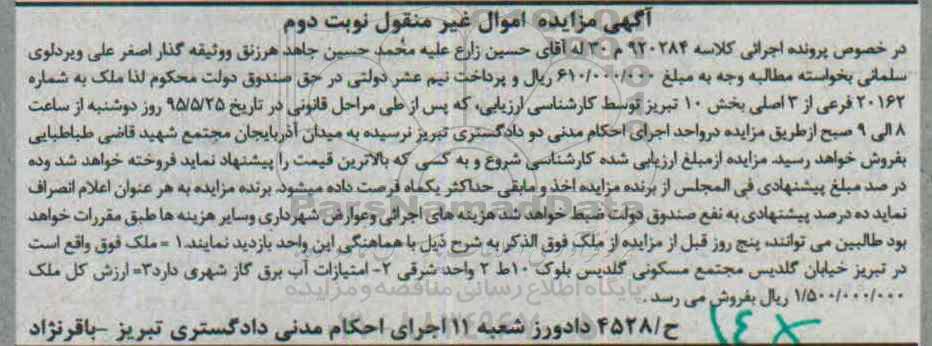 آگهی مزایده اموال غیر منقول نوبت دوم
در خصوص پرونده اجرائی کلاسه ۹۲۰۲۸۴ م ۳۰ له آقای حسین زارع علیه محمد حسین جاهد هرزنق ووثیقه گذار اصغر علی ویردلوی
سلمانی بخواسته مطالبه وجه به مبلغ ۶۱۰/۰۰۰/۰۰۰ ریال و پرداخت نیم عشر دولتی در حق صندوق دولت محکوم لذا ملک به شماره
۲۰۱۶۲ فرعی از ۳ اصلی بخش ۱۰ تبریز توسط کارشناسی ارزیابی، که پس از طی مراحل قانونی در تاریخ ۹۵/۵/۲۵ روز دوشنبه از ساعت
۸ الی ۹ صبح ازطریق مزایده درواحد اجرای احکام مدنی دو دادگستری تبریز نرسیده به میدان آذربایجان مجتمع شهید قاضی طباطبایی
بفروش خواهد رسید. مزایده ازمبلغ ارزیابی شده کارشناسی شروع و به کسی که بالاترین قیمت را پیشنهاد نماید فروخته خواهد شد وده
در صد مبلغ پیشنهادی فی المجلس از برنده مزایده اخذ و مابقی حداکثر یکماه فرصت داده میشود. برنده مزایده به هر عنوان اعلام انصراف
نماید ده درصد پیشنهادی به نفع صندوق دولت ضبط خواهد شد هزینه های اجرائی وعوارض شهرداری وسایر هزینه ها طبق مقررات خواهد
بود طالبین می توانند، پنج روز قبل از مزایده از ملک فوق الذکر به شرح ذیل با هماهنگی این واحد بازدید نمایند.۱ =ملک فوق واقع است
در تبریز خیابان گلدیس مجتمع مسکونی گلدیس بلوک ۱۰ط ۲ واحد شرقی ۲- امتیازات آب برق گاز شهری دارد۳= ارزش کل ملک
۱/۵۰۰/۰۰۰/۰۰۰ ریال بفروش می رسد .
ح/۴۵۲۸ دادورز شعبه ۱۱ اجرای احکام مدنی دادگستری تبریز –باقرنژاد
ParsNamadData
پایگاه اطلاع رسانی مناقصه و مزایده